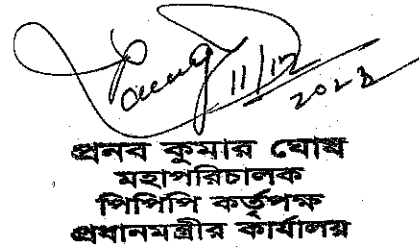 11/12
2023
প্রনব কুমার ঘোষ
মহাপরিচালক
পিপিপি কর্তৃপক্ষ
প্রধানমন্ত্রীর কার্যালয়